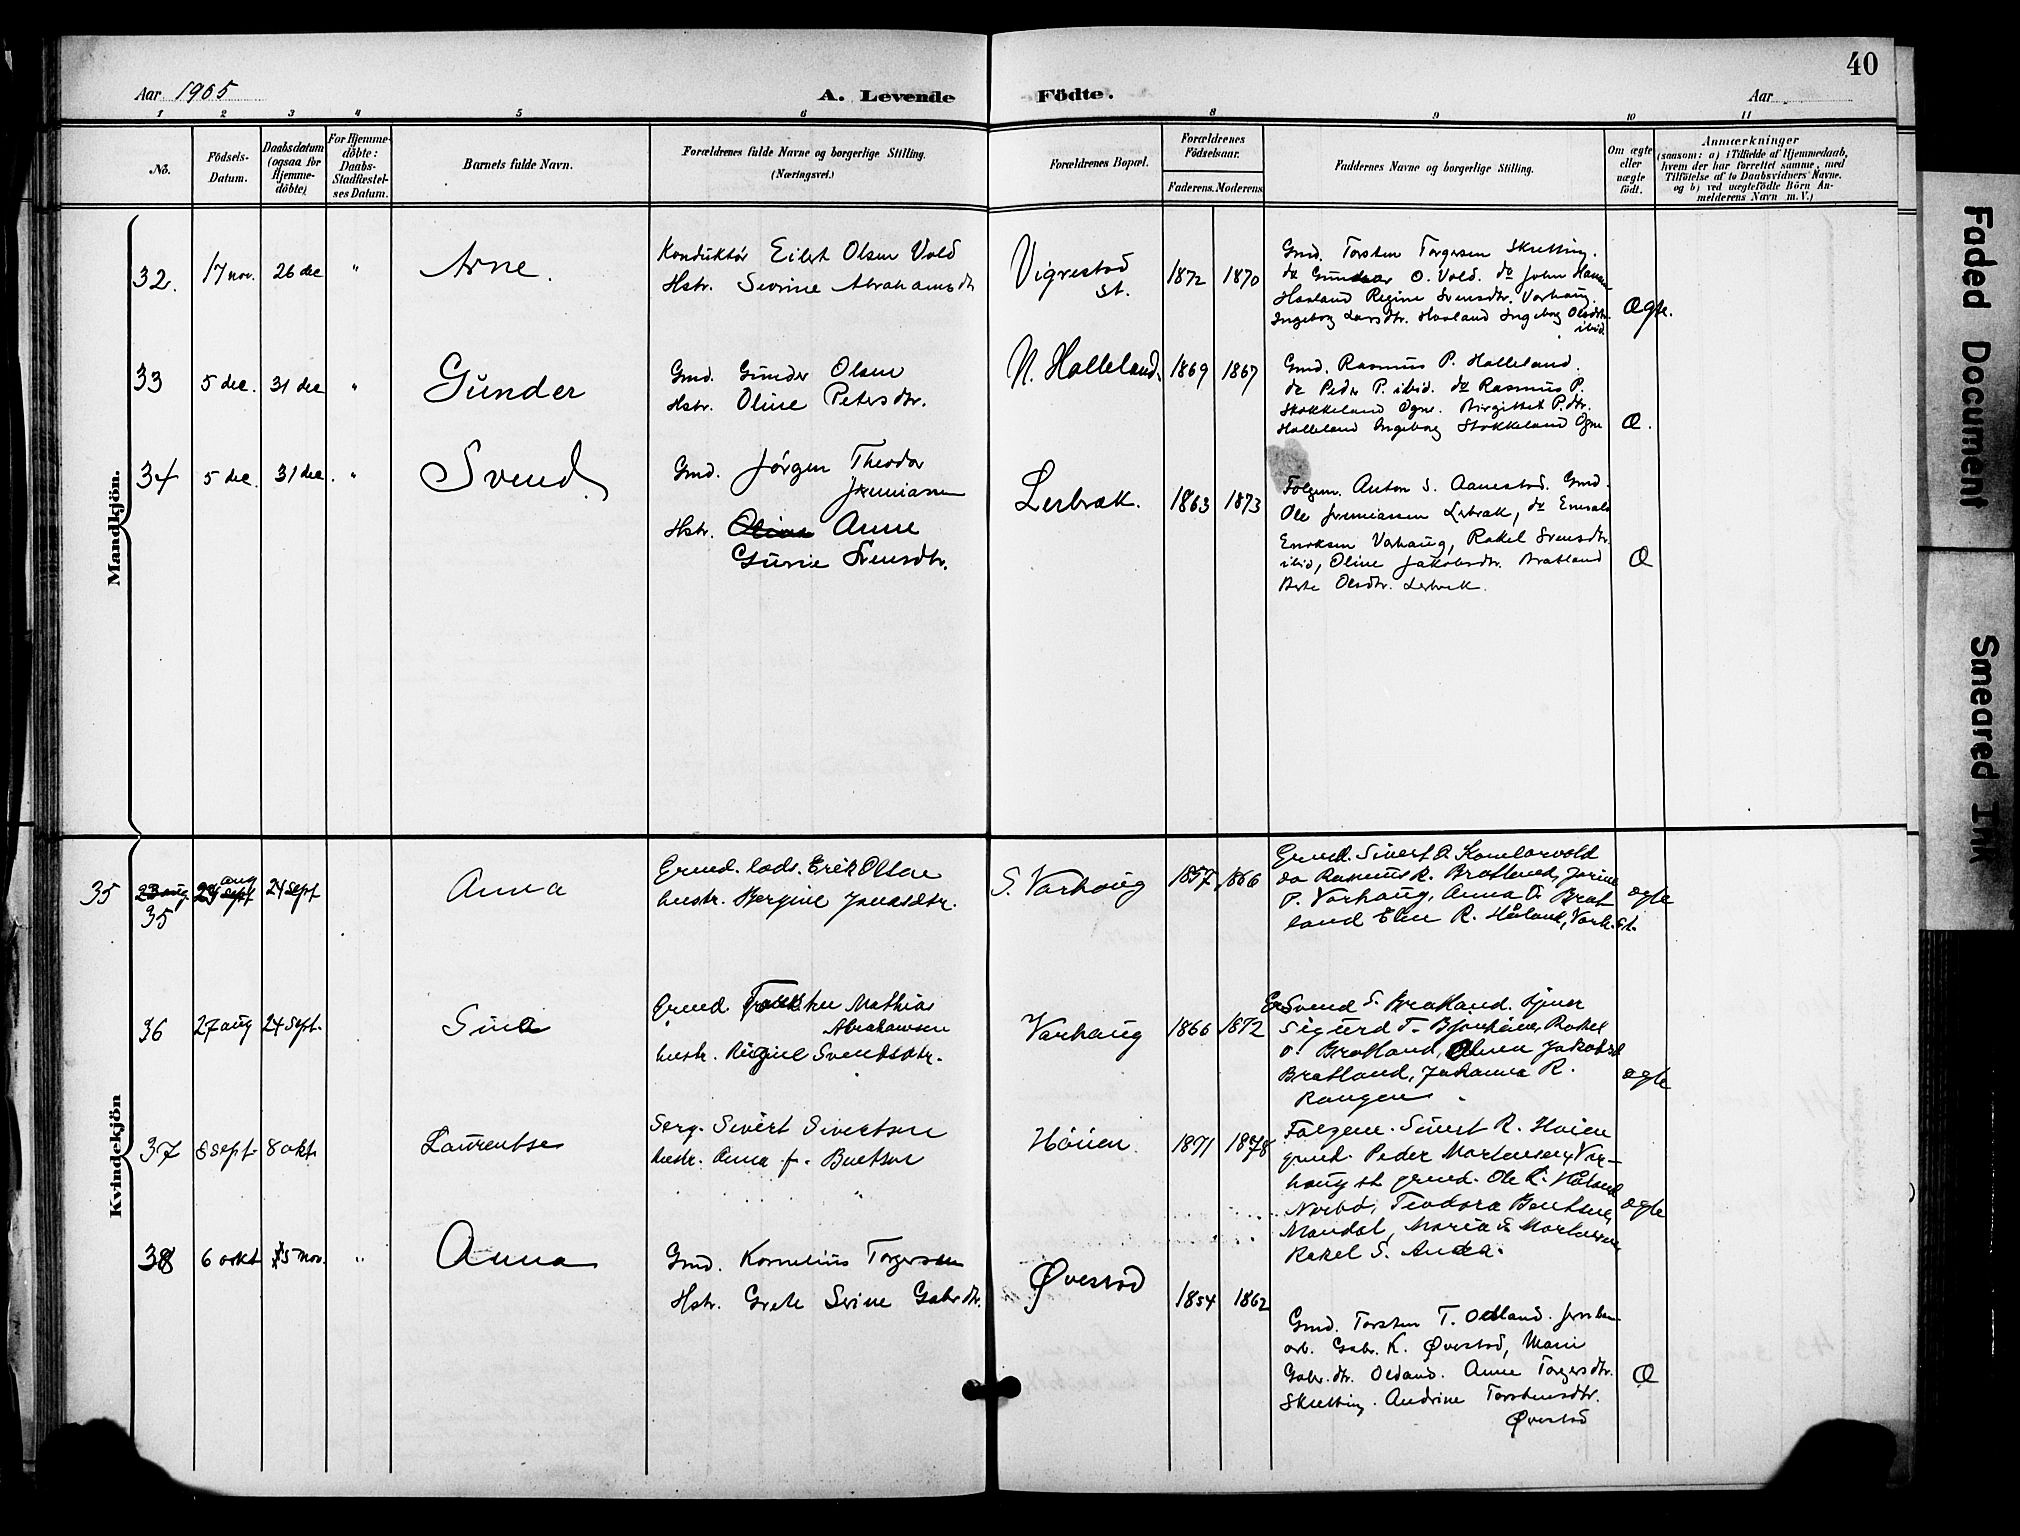 40
Aar 1905
A. Levende Födte.
Aar
1 2 3 4 5 6 8 9 10 11
No.
Födsels-
Datum.
Daabsdatum
(ogsaa for
Hjemme-
döbte)
For Hjemme-
döbte:
Daabs-
Stadfæstel-
ses Datum.
Barnets fulde Navn.
Forældrenes fulde Navne og borgerlige Stilling.
(Næringsvei.)
Forældrenes Bopæl.
Forældrenes
Födselsaar.
Faderens. Moderens.
Faddernes Navne og borgerlige Stilling.
Om ægte
eller
uægte
födt.
Anmærkninger
(saasom: a) i Tilfælde af Hjemmedaab,
hvem der har forrettet samme, med
Tilföielse af to Daabsvidners Navne.
og b) ved uægtefödte Börn An-
melderens Navn m. V.)
Mandkjön.
32. 17 nov. 26 dec " Arne.
Konduktör Eilert Olsen Vold
Hstr. Sevrine Abrahamsdt
Vigrestad
St.
1872 1870
Gmd. Torsten Torgersen Skretting.
do Gunder O. Vold. do John Hansen
Haaland Regine Svensdtr. Varhaug.
Ingeborg Larsdtr. Haaland Ingeborg Olsdtr.
ibid.
Ægte.
33 5 dec. 31 dec " Gunder
Gmd. Gunder Olsen
Hstr. Oline Petersdtr.
N. Holleland.
1869 1867
Gmd. Rasmus P. Holleland.
do Peder P. ibid. do Rasmus P.
Stokkeland Ogne. Birgitte P.dtr.
Holleland Ingeborg Stokkeland Ogne
Æ.
34 5 dec. 31 dec. " Svend
Gmd. Jörgen Theodor
Jeremiassen
Hstr. Oline Anne
Gurie Svensdtr.
Lerbræk.
1863 1873
Folgem. Anton S. Aanestad. Gmd.
Ole Jeremiassen Lerbræk, do
Eriksen Varhaug, Rakel Svensdtr
ibid, Oline Jakobsdtr. Bratland
Berte Olsdtr. Lerbræk.
Æ
Kvindekjön
35 23 aug. 24 sept aug 24 sept Anna
35
Grmd. lods. Erik Olsen
hustr. Bergine Jonasdtr.
S. Varhaug
1857 1866
Grmd. Sivert A. Kondarvold
do Rasmus R. Bratland, Jorine
P. Varhaug, Anna O. Brat
land Elen R. Håland, Varh. St.
ægte
36 27 aug 24 sept. Sina
Grmd Torsten Mathias
Abrahamsen
hustr. Regine Svendsdtr.
Varhaug
1866 1872
Svend S. Bratland. tjener
Sigurd T. Rakel
O. Bratland, Jakobsd
Bratland, Johanna R.
Rangen
ægte
37 8 sept. 8 okt. Laurentse
Serg. Sivert Sivertsen
hustr. Anna f. Bentsen
Höiien.
1871 1878
Folgem. Sivert R. Hoien
grmd. Peder Mortensen, Var-
haug st grmd. Ole R. Håland
Nærbö, Teodora Bentsen,
Mandal, Maria Mortensen
Rakel S. Anda.
ægte
38 6 okt 5 nov. " Anna
Gmd. Kornelius Torgersen
Hstr. Grete Serine Gabr.dtr.
Øvestad
1854 1862
Gmd. Torsten T. Odland. Jernban
arb. Gabr. K. Øvestad, Marie
Gabr.dtr. Odland. Anne Torgersdtr.
Skretting. Andrine Torstensdtr.
Øvestad
Æ
Faded Document
Smeared Ink